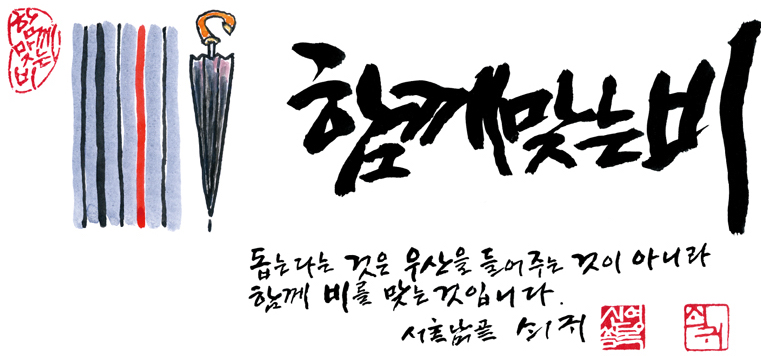 함께
맞는
비
함께맞는비
돕는다는 것은 우산을 들어주는 것이 아니라
함께 비를 맞는것입니다.
쇠귀